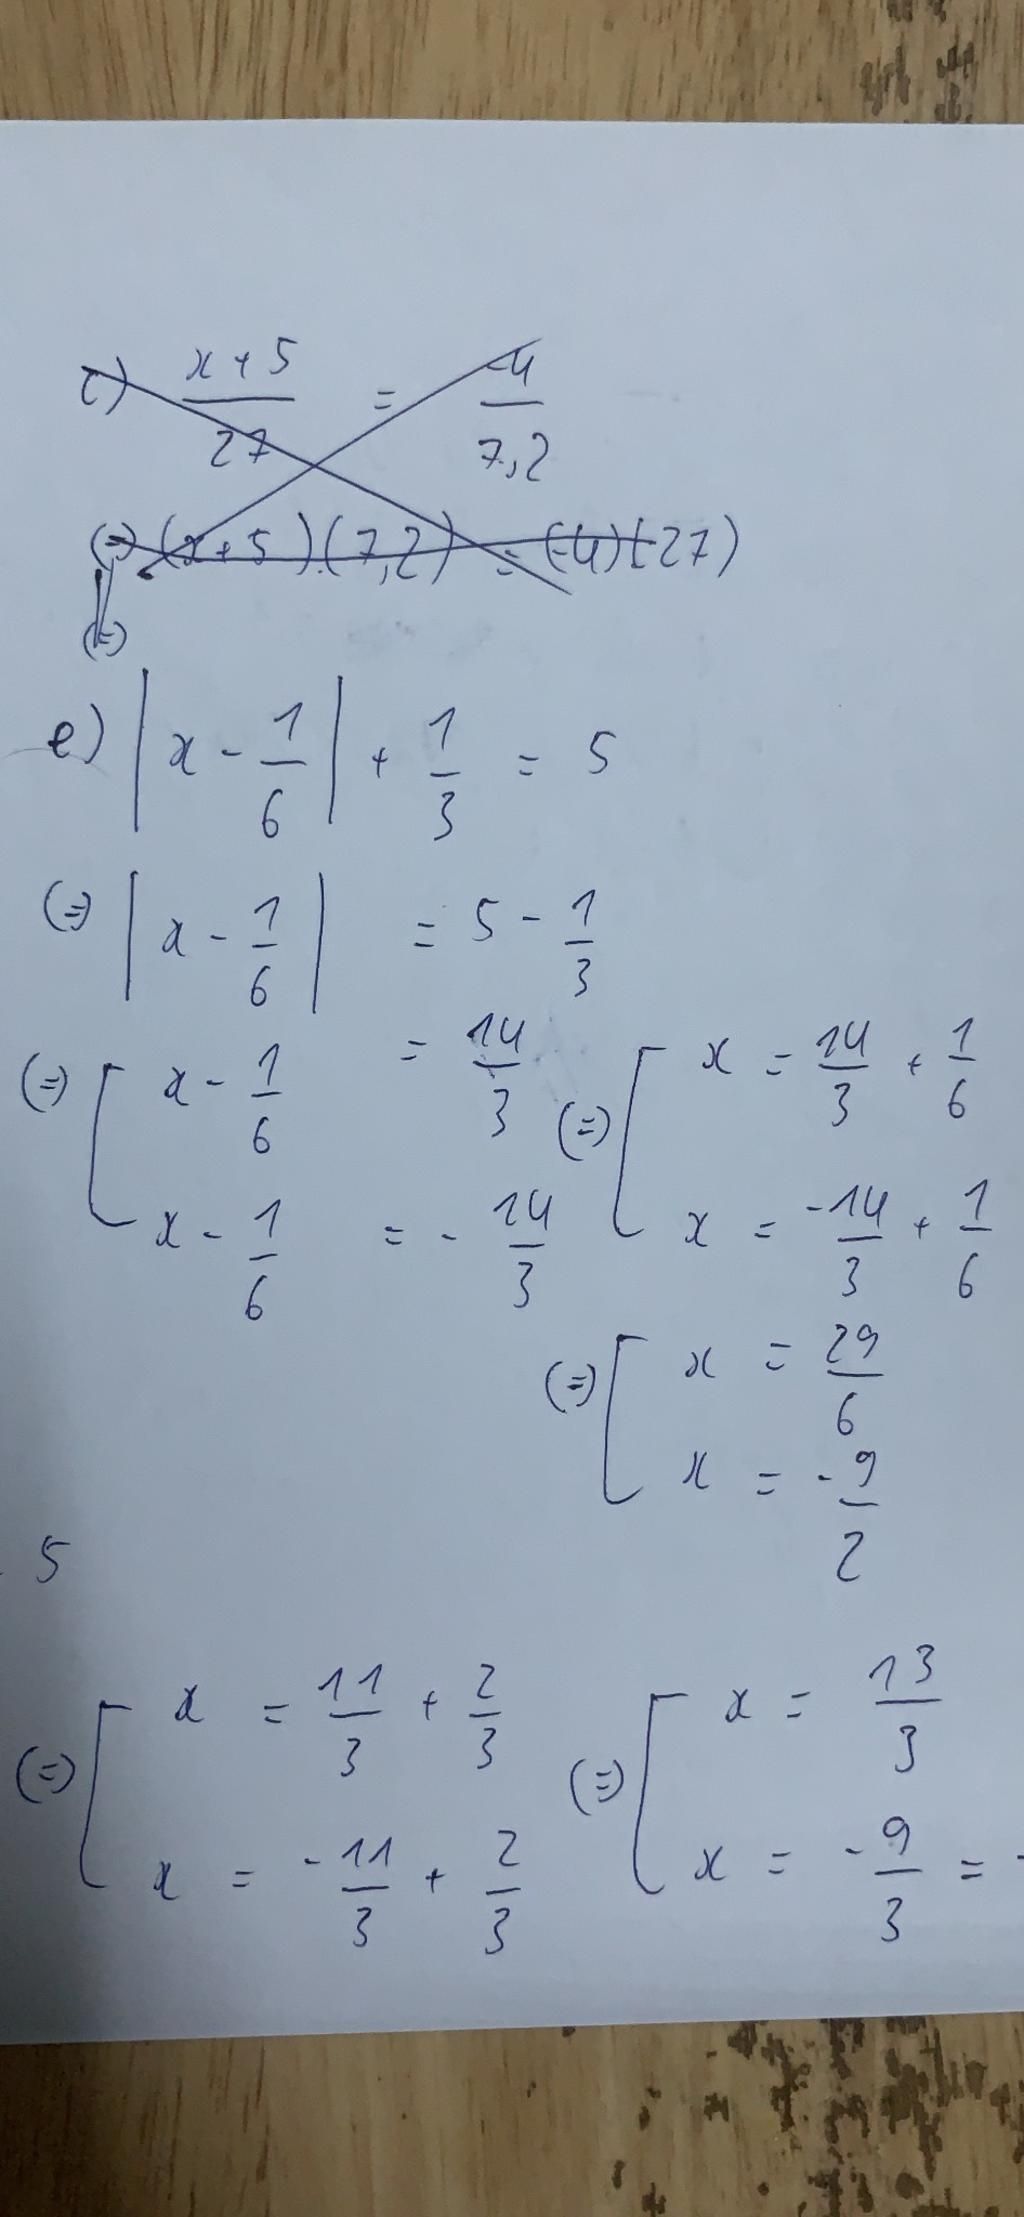 c) x + 5 / 27 = -4 / 7,2
(=) (x + 5).(7,2) = (-4)(-27)
(=)
e) | x - 1/6 | + 1/3 = 5
(=) | x - 1/6 | = 5 - 1/3
(=) [ x - 1/6 = 14/3
x - 1/6 = - 14/3
(=) [ x = 14/3 + 1/6
x = -14/3 + 1/6
(=) [ x = 29/6
x = - 9/2
5
(=) [ x = 11/3 + 2/3
x = - 11/3 + 2/3
(=) [ x = 13/3
x = - 9/3 = -